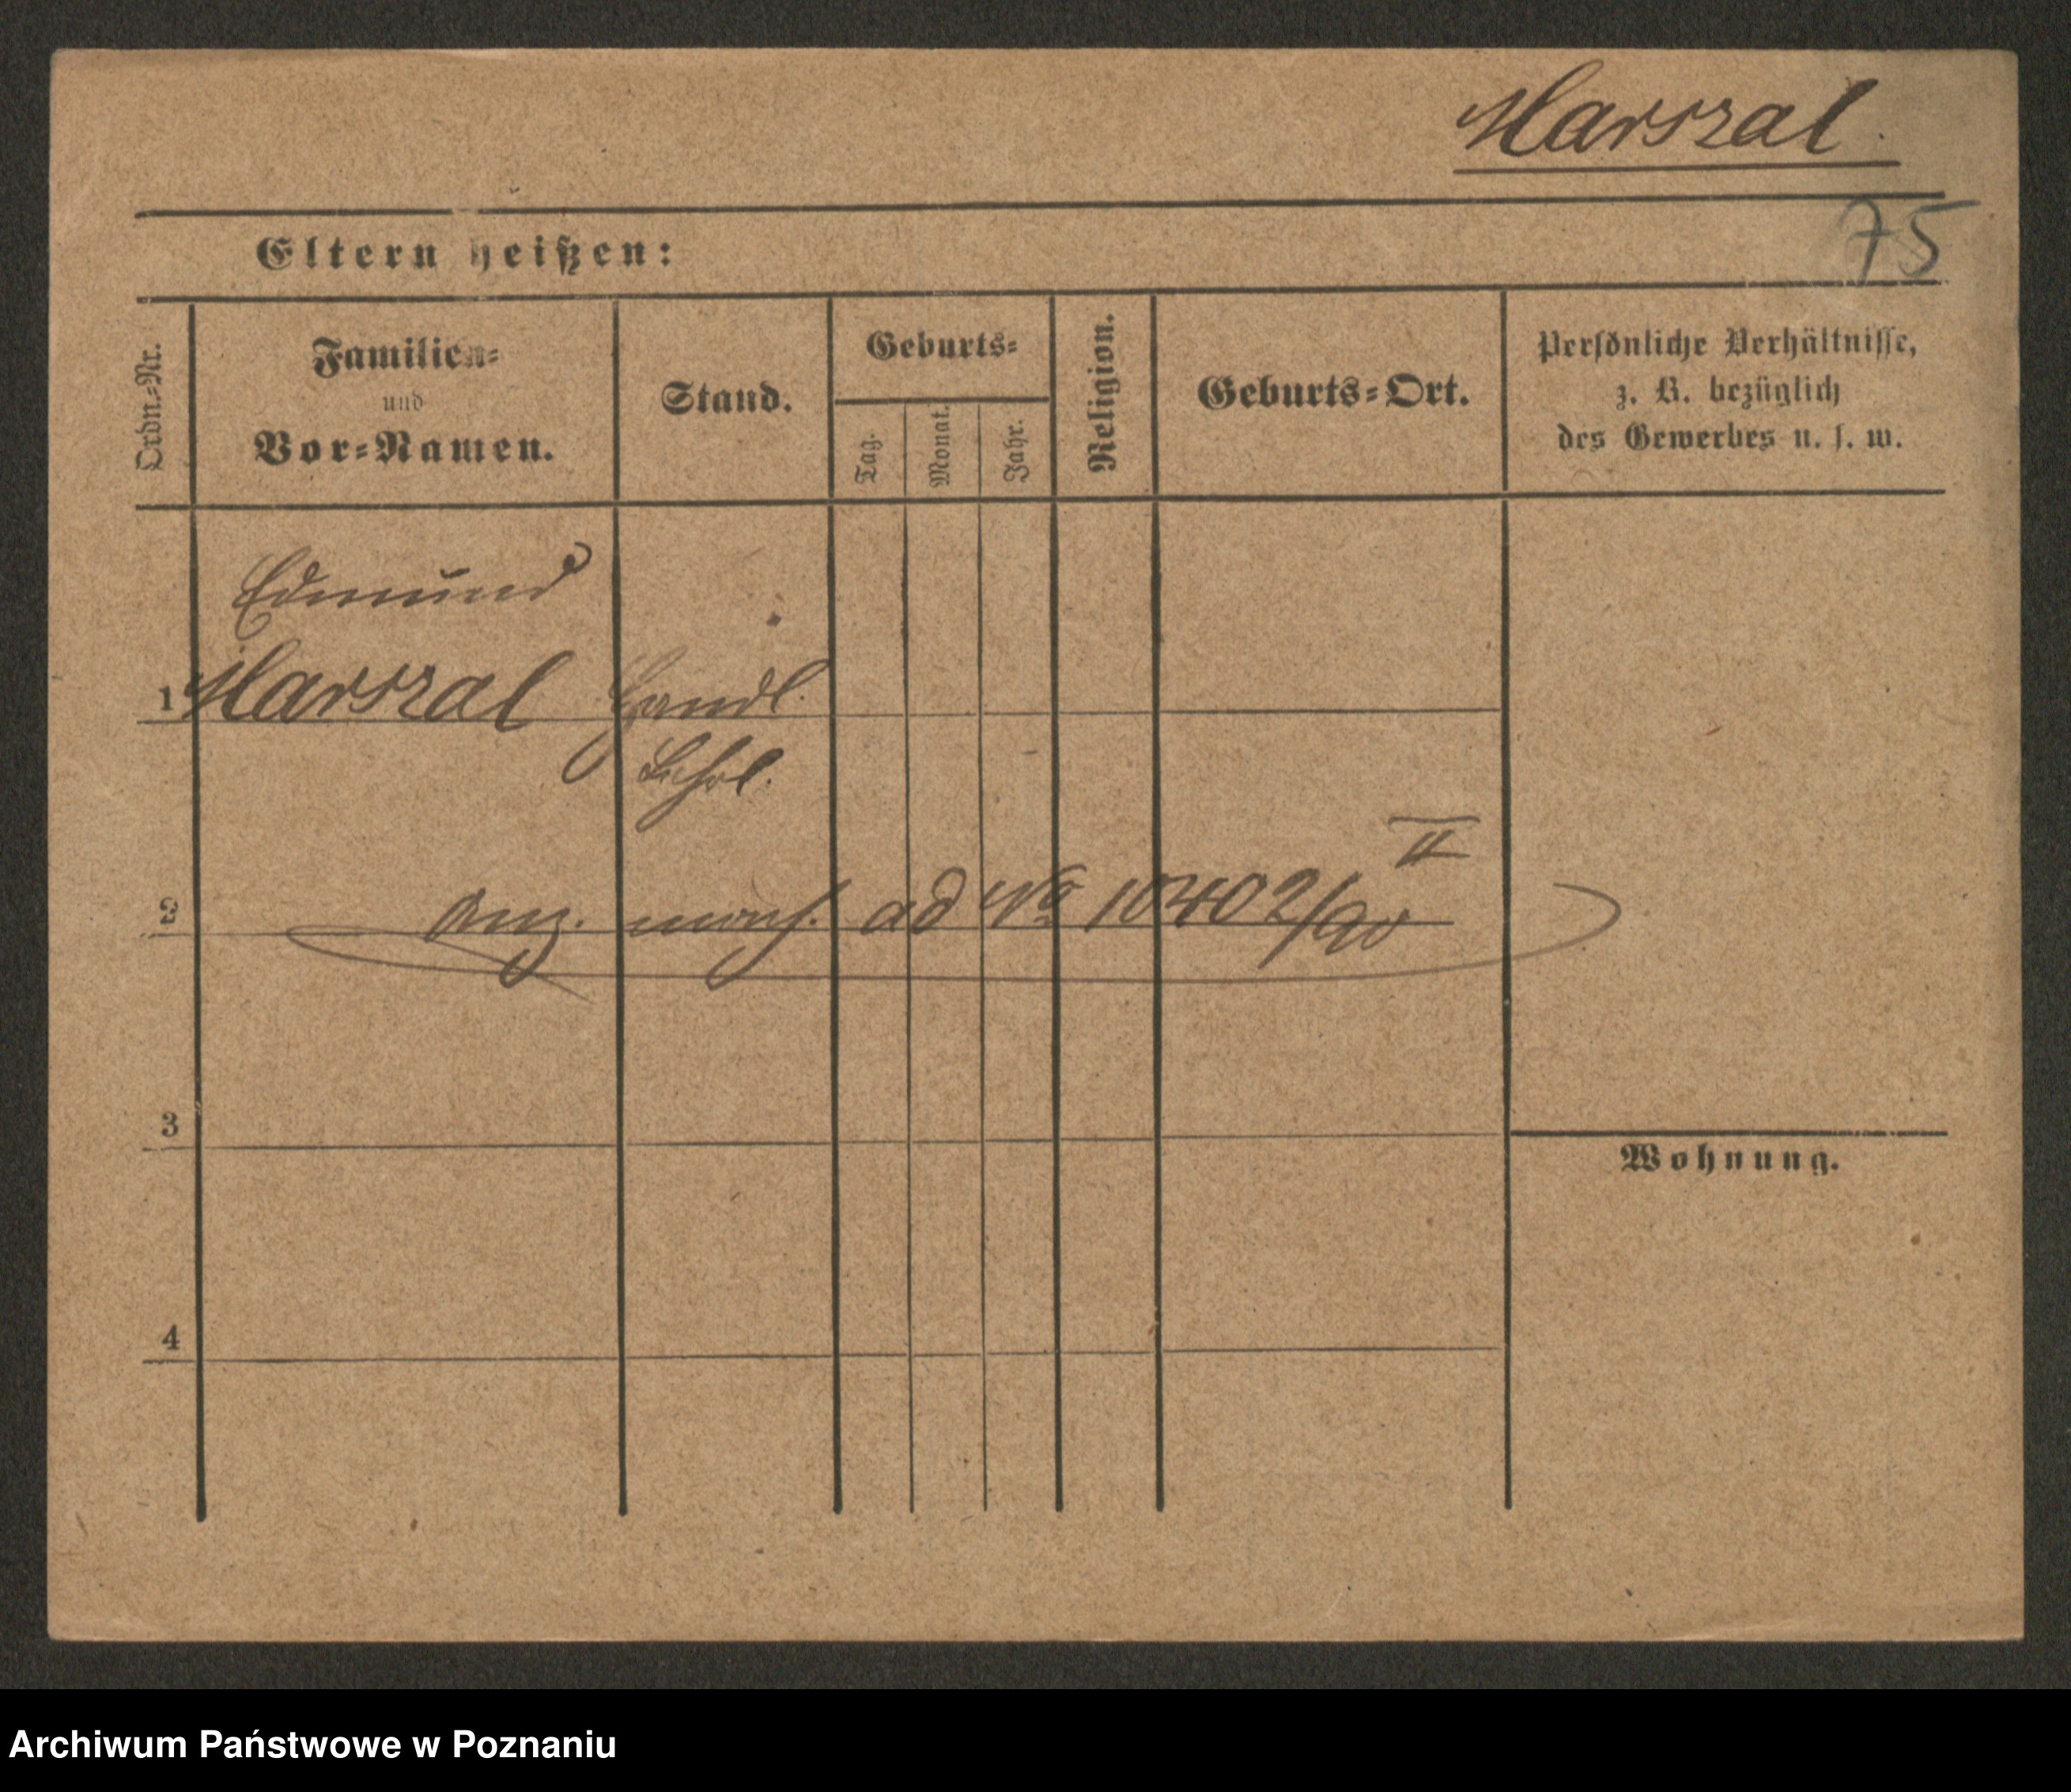 Marszal.
75
Eltern heißen:
Ordn.-Nr.
Familien-
und
Vor-Namen.
Stand.
Geburts-
Tag.
Monat.
Jahr.
Religion.
Geburts-Ort.
Persönliche Verhältnisse,
z. B. bezüglich
des Gewerbes u. s. w.
Edmund
1 Marszal Handl.
Lehrl.
II
2 Anz. ad No 10402/90
3
Wohnung.
4
Archiwum Państwowe w Poznaniu